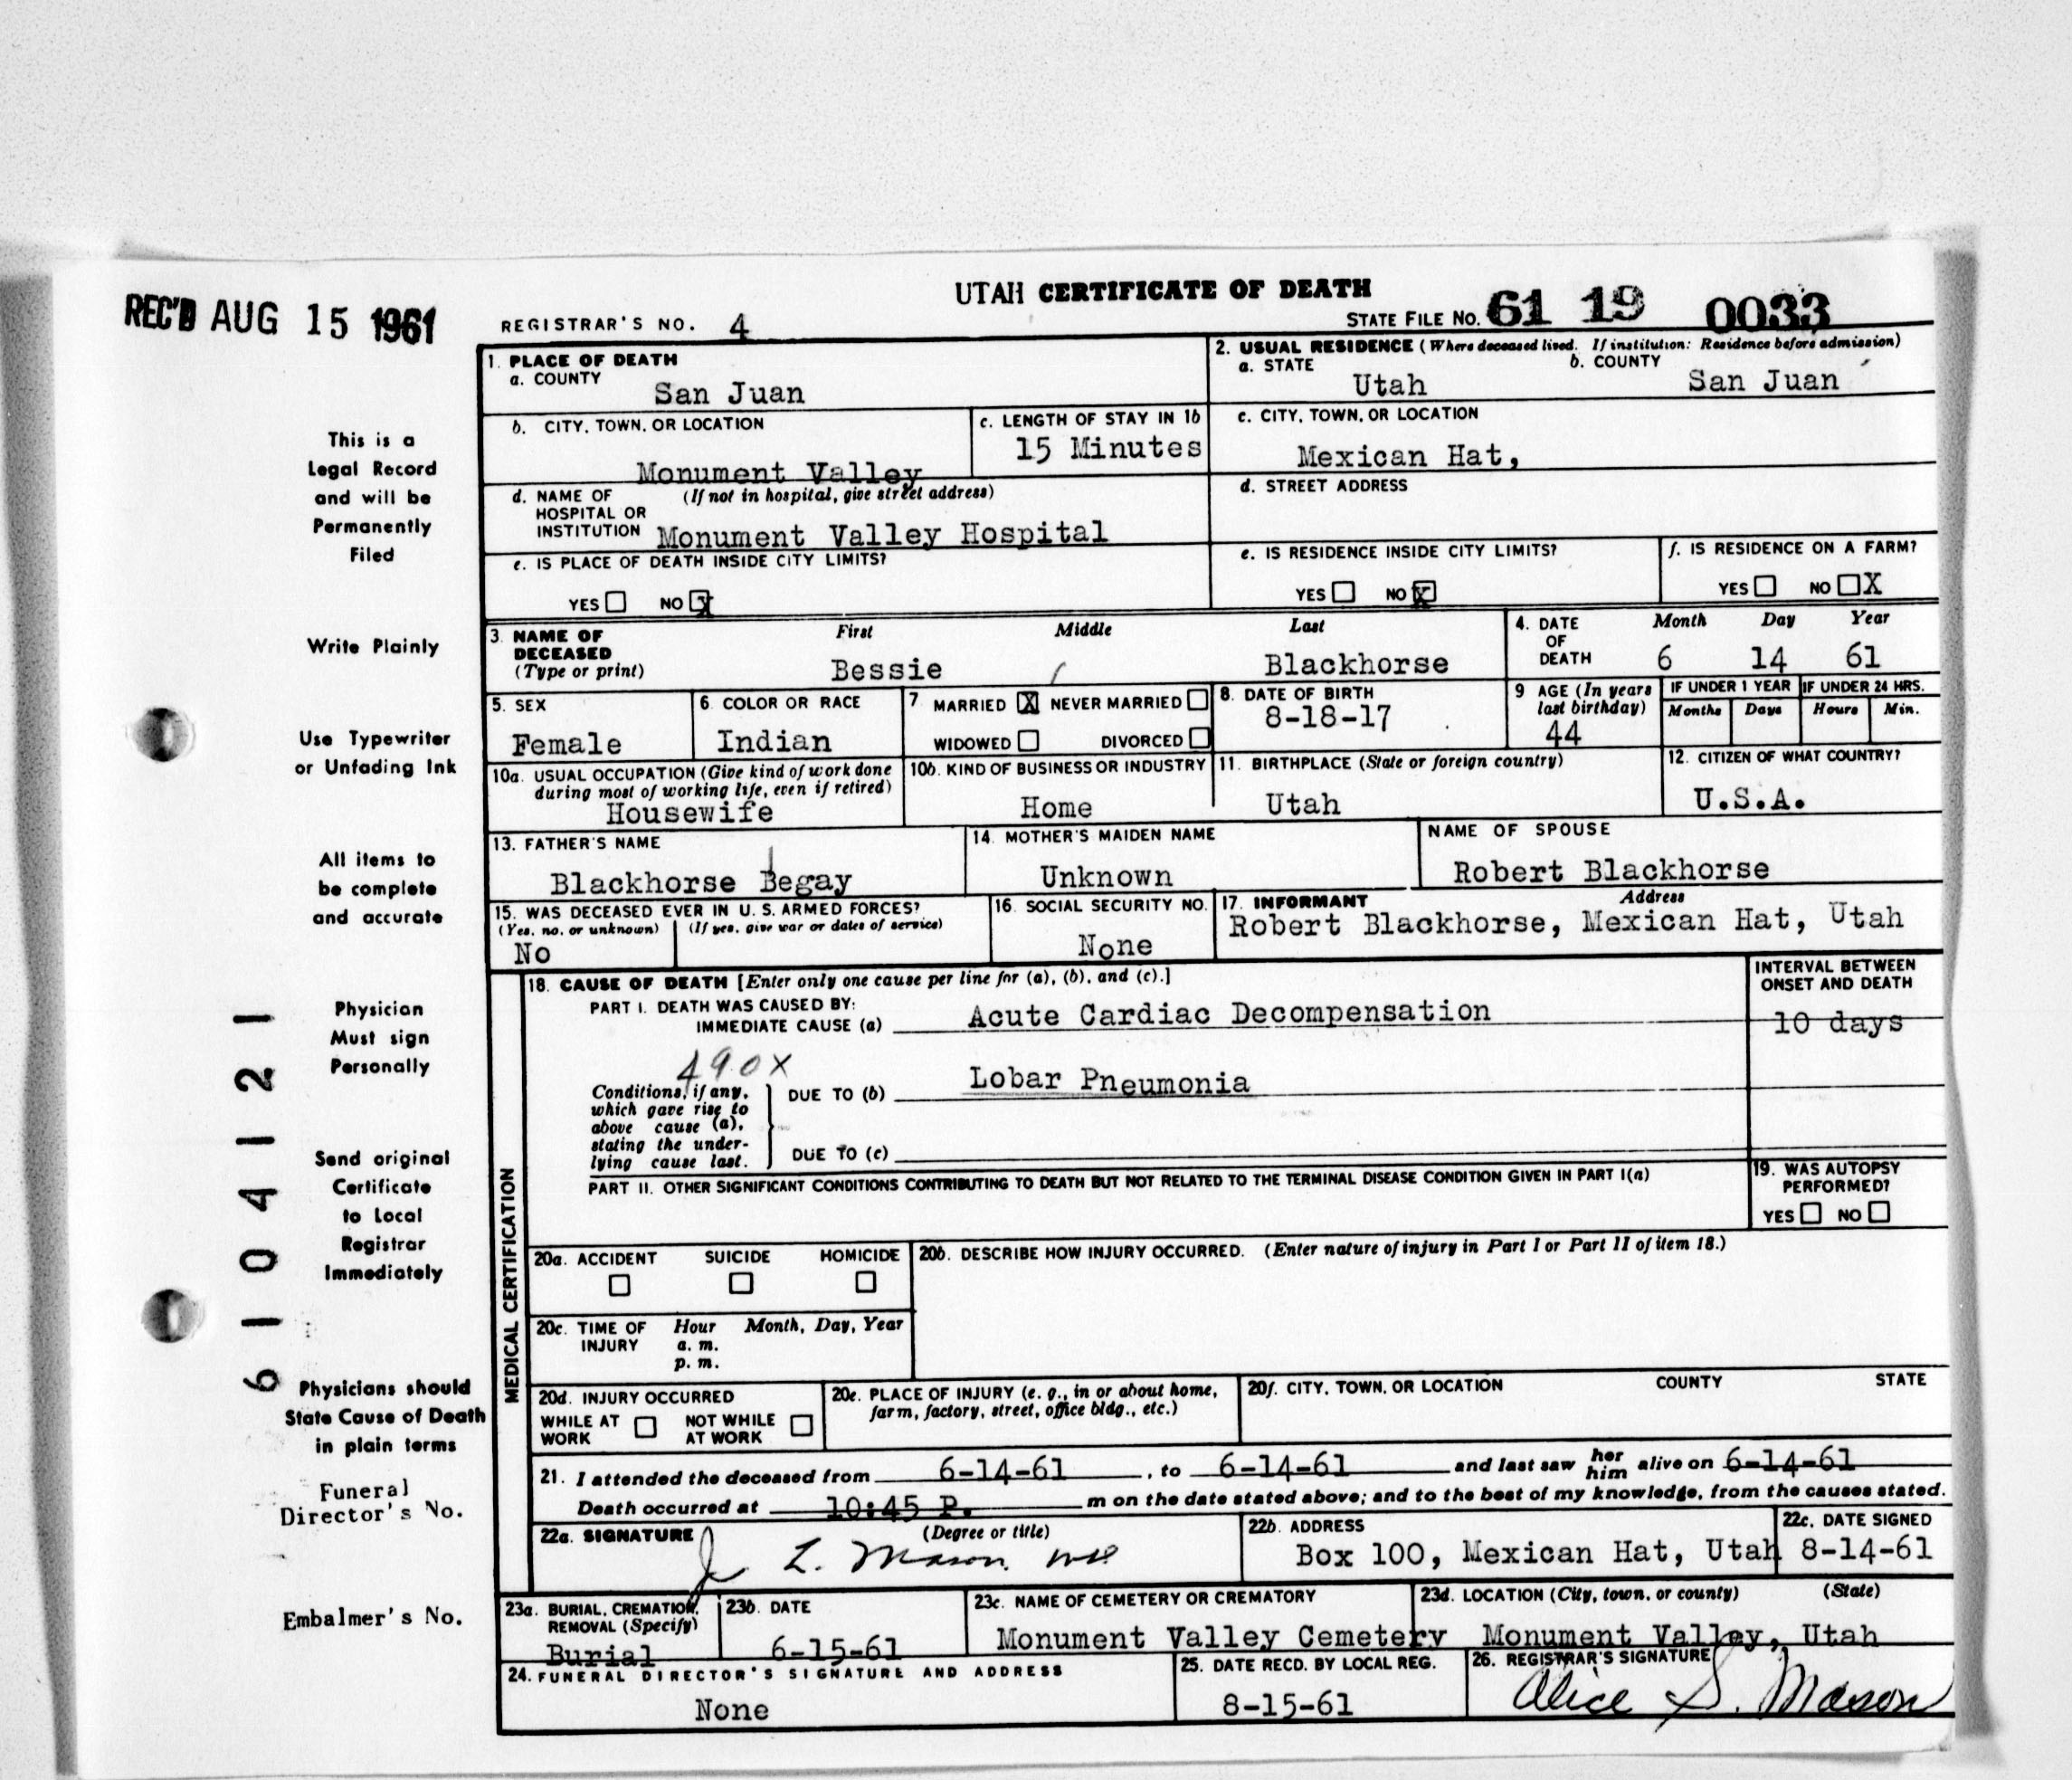 UTAH CERTIFICATE OF DEATH
REC'D AUG 15 1961
REGISTRAR'S NO. 4
STATE FILE NO. 61 19 0033
1. PLACE OF DEATH
a. COUNTY
San Juan
2. USUAL RESIDENCE (Where deceased lived. If institution: Residence before admission)
a. STATE
Utah
b. COUNTY
San Juan
b. CITY, TOWN, OR LOCATION
Monument Valley
c. LENGTH OF STAY IN 1b
15 Minutes
c. CITY, TOWN, OR LOCATION
Mexican Hat,
d. NAME OF (If not in hospital, give street address)
HOSPITAL OR
INSTITUTION Monument Valley Hospital
d. STREET ADDRESS
e. IS PLACE OF DEATH INSIDE CITY LIMITS?
YES NO X
e. IS RESIDENCE INSIDE CITY LIMITS?
YES NO X
f. IS RESIDENCE ON A FARM?
YES NO X
3. NAME OF DECEASED
(Type or print)
First Middle Last
Bessie Blackhorse
4. DATE OF DEATH
Month Day Year
6 14 61
5. SEX
Female
6. COLOR OR RACE
Indian
7. MARRIED X NEVER MARRIED
WIDOWED DIVORCED
8. DATE OF BIRTH
8-18-17
9 AGE (In years last birthday)
44
IF UNDER 1 YEAR
Months Days
IF UNDER 24 HRS.
Hours Min.
10a. USUAL OCCUPATION (Give kind of work done
during most of working life, even if retired)
Housewife
10b. KIND OF BUSINESS OR INDUSTRY
Home
11. BIRTHPLACE (State or foreign country)
Utah
12. CITIZEN OF WHAT COUNTRY?
U.S.A.
13. FATHER'S NAME
Blackhorse Begay
14. MOTHER'S MAIDEN NAME
Unknown
NAME OF SPOUSE
Robert Blackhorse
15. WAS DECEASED EVER IN U. S. ARMED FORCES?
(Yes, no, or unknown) (If yes, give war or dates of service)
No
16. SOCIAL SECURITY NO.
None
17. INFORMANT Address
Robert Blackhorse, Mexican Hat, Utah
MEDICAL CERTIFICATION
18. CAUSE OF DEATH [Enter only one cause per line for (a), (b), and (c).]
INTERVAL BETWEEN
ONSET AND DEATH
PART I. DEATH WAS CAUSED BY:
IMMEDIATE CAUSE (a) Acute Cardiac Decompensation
10 days
490X
Conditions, if any,
which gave rise to
above cause (a),
stating the under-
lying cause last.
DUE TO (b) Lobar Pneumonia
DUE TO (c)
PART II. OTHER SIGNIFICANT CONDITIONS CONTRIBUTING TO DEATH BUT NOT RELATED TO THE TERMINAL DISEASE CONDITION GIVEN IN PART I(a)
19. WAS AUTOPSY
PERFORMED?
YES NO
20a. ACCIDENT SUICIDE HOMICIDE
20b. DESCRIBE HOW INJURY OCCURRED. (Enter nature of injury in Part I or Part II of item 18.)
20c. TIME OF INJURY
Hour Month, Day, Year
a. m.
p. m.
20d. INJURY OCCURRED
WHILE AT WORK NOT WHILE AT WORK
20e. PLACE OF INJURY (e. g., in or about home,
farm, factory, street, office bldg., etc.)
20f. CITY, TOWN, OR LOCATION COUNTY STATE
21. I attended the deceased from 6-14-61, to 6-14-61 and last saw her him alive on 6-14-61
Death occurred at 10:45 P. m on the date stated above; and to the best of my knowledge, from the causes stated.
22a. SIGNATURE (Degree or title)
J L. Mason MD
22b. ADDRESS
Box 100, Mexican Hat, Utah
22c. DATE SIGNED
8-14-61
23a. BURIAL, CREMATION,
REMOVAL (Specify)
Burial
23b. DATE
6-15-61
23c. NAME OF CEMETERY OR CREMATORY
Monument Valley Cemetery
23d. LOCATION (City, town, or county) (State)
Monument Valley, Utah
24. FUNERAL DIRECTOR'S SIGNATURE AND ADDRESS
None
25. DATE RECD. BY LOCAL REG.
8-15-61
26. REGISTRAR'S SIGNATURE
Alice S. Mason
This is a
Legal Record
and will be
Permanently
Filed
Write Plainly
Use Typewriter
or Unfading Ink
All items to
be complete
and accurate
Physician
Must sign
Personally
Send original
Certificate
to Local
Registrar
Immediately
Physicians should
State Cause of Death
in plain terms
Funeral
Director's No.
Embalmer's No.
6104121